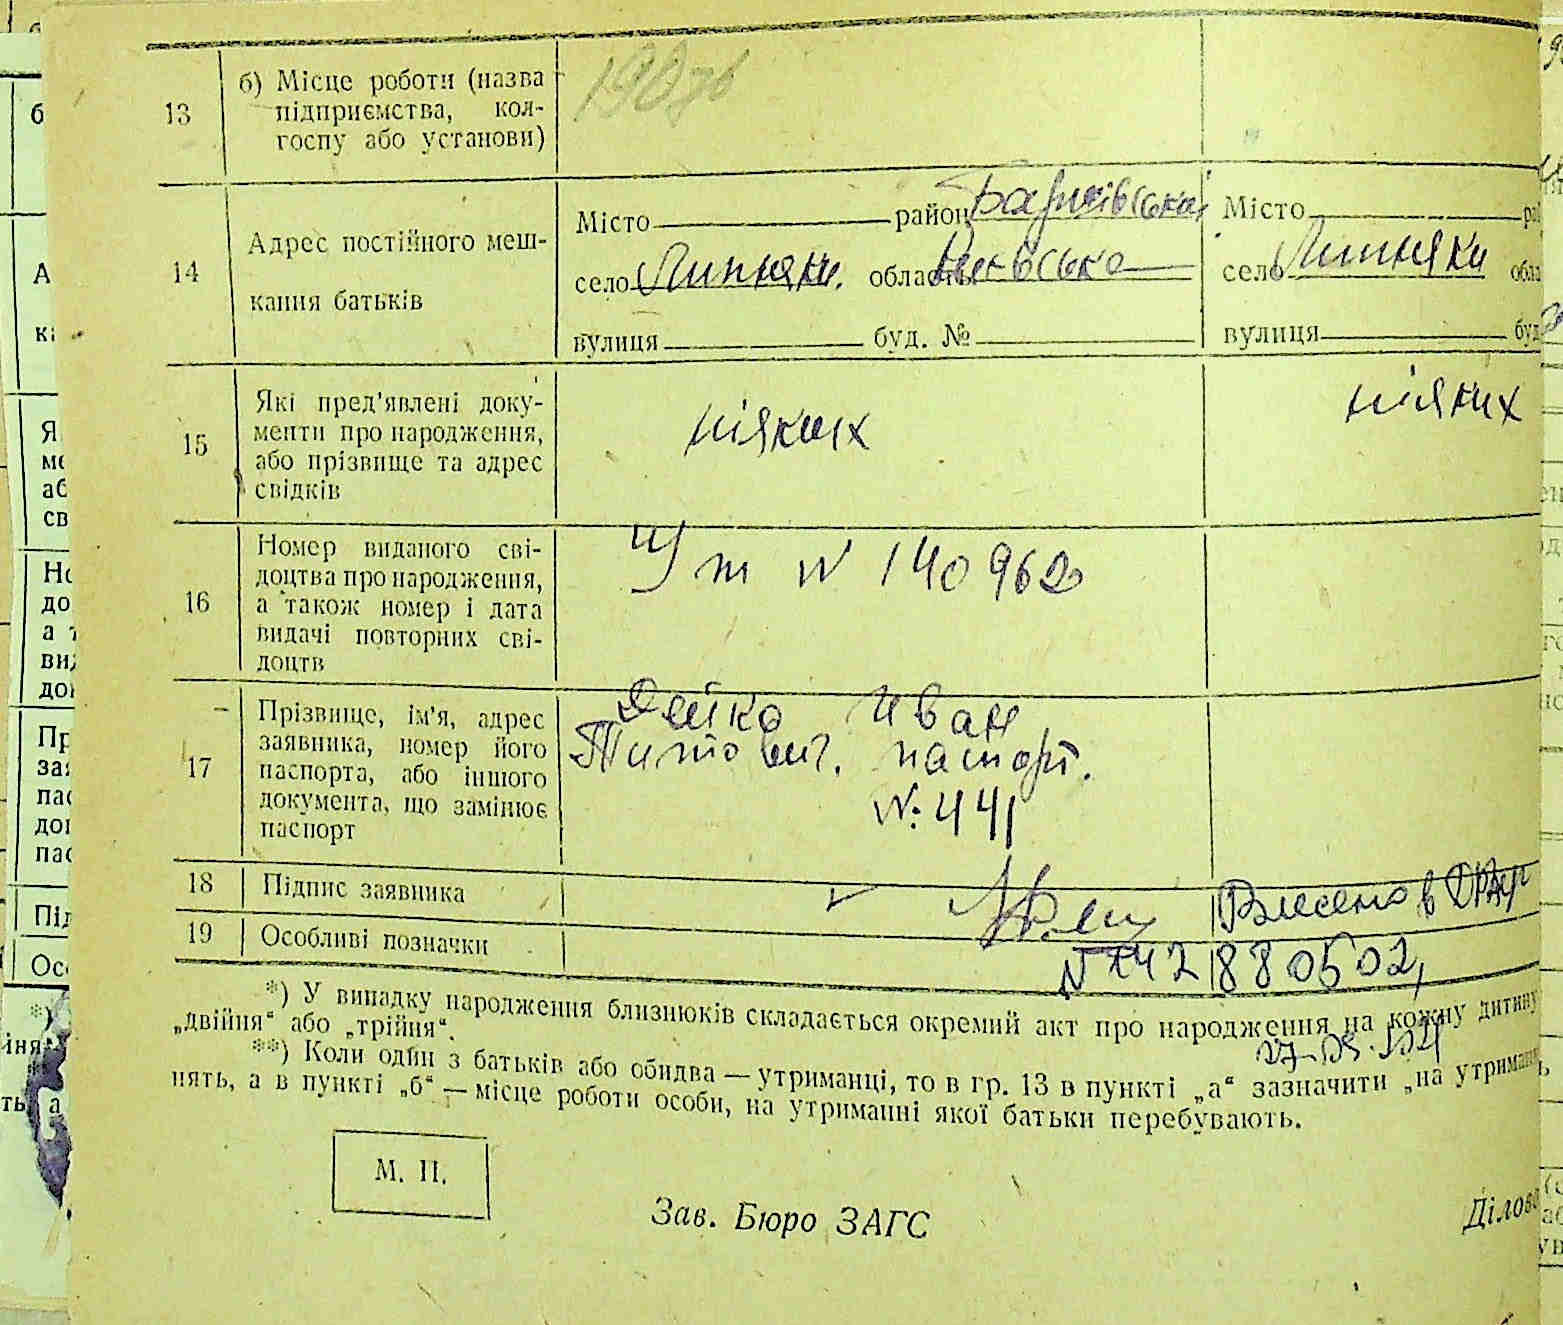 13
б) Місце роботи (назва
підприємства, кол-
госпу або установи)
14
Адрес постійного меш-
кання батьків
Місто район
село Липняки. область
вулиця буд. №
Місто
село Липняки
вулиця
15
Які пред'явлені доку-
менти про народження,
або прізвище та адрес
свідків
ніяких
ніяких
16
Номер виданого сві-
доцтва про народження,
а також номер і дата
видачі повторних сві-
доцтв
N 140962
17
Прізвище, ім'я, адрес
заявника, номер його
паспорта, або іншого
документа, що замінює
паспорт
Дейко Иван
Титович. паспорт.
№ 441
18 Підпис заявника
Внесено в ДРАЦС
19 Особливі позначки
*) У випадку народження близнюків складається окремий акт про народження на кожну дитину
„двійня“ або „трійня“.
**) Коли один з батьків або обидва — утриманці, то в гр. 13 в пункті „а“ зазначити „на утриман
нять, а в пункті „б“ — місце роботи особи, на утриманні якої батьки перебувають.
М. П.
Зав. Бюро ЗАГС
Ділово